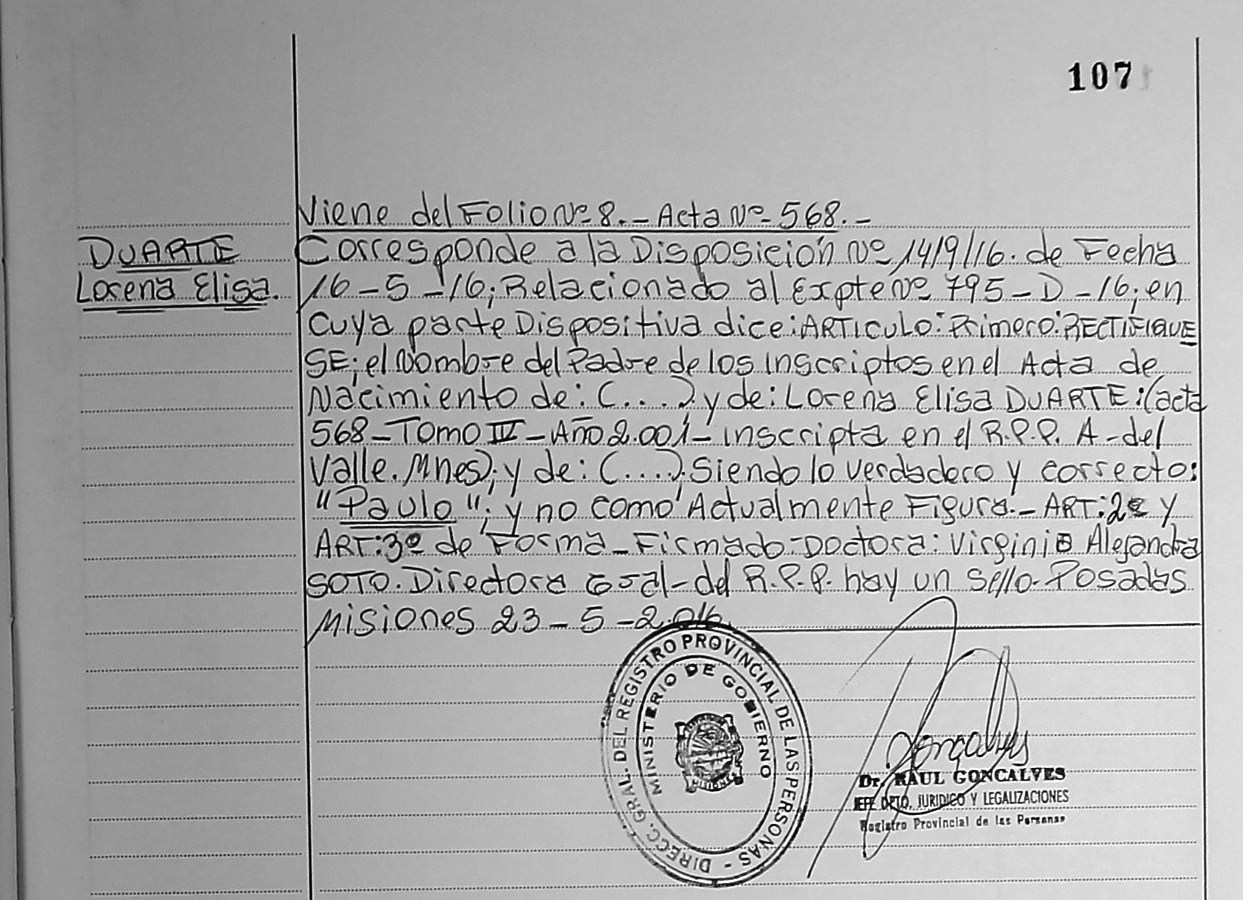 107
Viene del Folio Nº 8.- Acta Nº 568.-
DUARTE
Lorena Elisa.
Corresponde a la Disposición Nº 1419/16. de Fecha
16-5-16; Relacionado al Expte Nº 795-D-16; en
cuya parte Dispositiva dice: ARTICULO: Primero: RECTIFIQUE
SE; el Nombre del Padre de los Inscriptos en el Acta de
Nacimiento de: (....) y de: Lorena Elisa DUARTE: (acta
568-TOMO III-Año 2.001- inscripta en el R.P.P. A-del
Valle. Mnes); y de: (....). Siendo lo verdadero y correcto:
"Paulo"; y no como Actualmente Figura.- ART: 2º y
ART: 3º de Forma-Firmado-Doctora: Virginia Alejandra
SOTO. Directora Gral-del R.P.P. hay un sello-Posadas
Misiones 23-5-2.016.
DIRECC. GRAL. DEL REGISTRO PROVINCIAL DE LAS PERSONAS -
MINISTERIO DE GOBIERNO
Goncalves
Dr. RAUL GONCALVES
JEFE DPTO. JURIDICO Y LEGALIZACIONES
Registro Provincial de las Personas